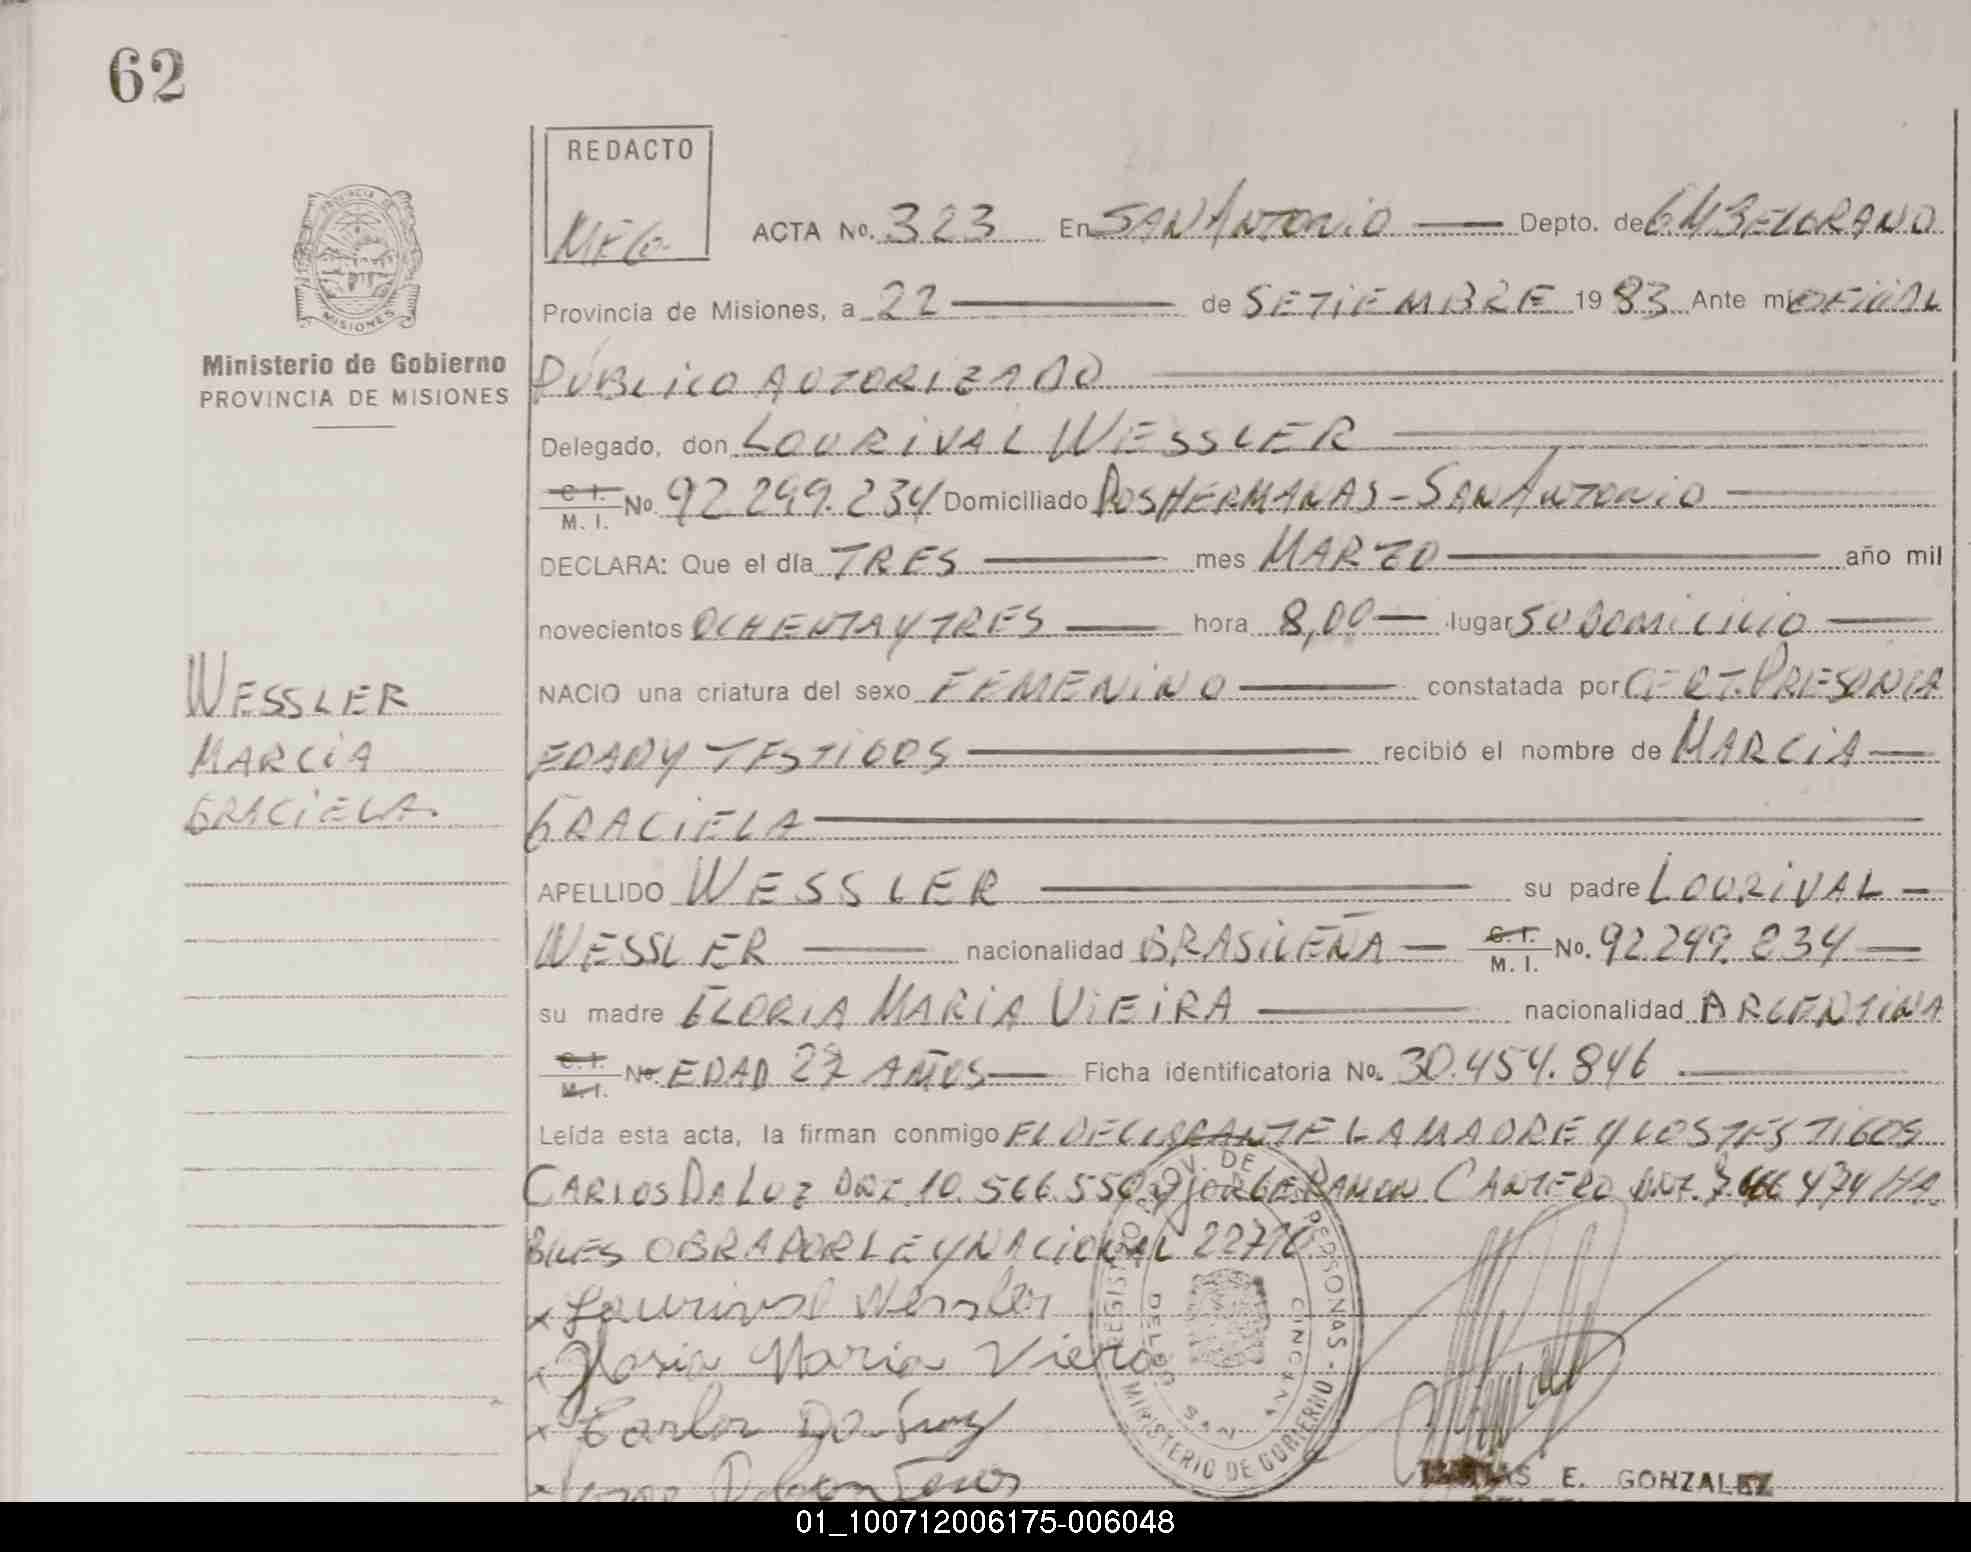 62
REDACTO
MEG.
ACTA No. 323 En SAN ANTONIO Depto. de G M BELGRANO
Provincia de Misiones, a 22 de SETIEMBRE 1983 Ante mi OFICIAL
PROVINCIA DE
MISIONES
Ministerio de Gobierno
PROVINCIA DE MISIONES
PÚBLICO AUTORIZADO
Delegado, don LOURIVAL WESSLER
C. I. M. I. No. 92.299.234 Domiciliado DOS HERMANAS - SAN ANTONIO
DECLARA: Que el día TRES mes MARZO año mil
novecientos OCHENTA Y TRES hora 8,00 lugar SU DOMICILIO
NACIO una criatura del sexo FEMENINO constatada por CERT. PRESUNTA
EDAD Y TESTIGOS recibió el nombre de MARCIA
GRACIELA
WESSLER
MARCIA
GRACIELA.
APELLIDO WESSLER su padre LOURIVAL
WESSLER nacionalidad BRASILEÑA C. I. M. I. No. 92.299.234
su madre GLORIA MARIA VIEIRA nacionalidad ARGENTINA
C. I. M. I. No. EDAD 27 AÑOS Ficha identificatoria No. 30.454.846
Leída esta acta, la firman conmigo EL DECLARANTE LA MADRE Y LOS TESTIGOS
CARLOS DA LUZ DNI. 10.566.550 y JORGE RAMON CANTERO DNI. 434 HA
BILES OBRA POR LEY NACIONAL
x Lourival Wessler
x Gloria Maria Viera
x Carlos Da Luz
REGISTRO PROV. DE LAS PERSONAS - MINISTERIO DE GOBIERNO
E. GONZALEZ
01_100712006175-006048